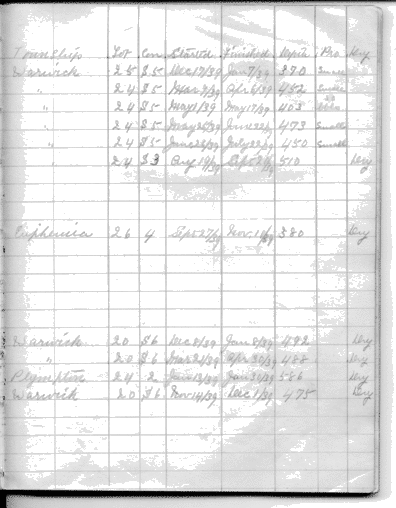 Townships Lot Con Started Finished Depth Pro Dry
Warwick 25 S5 Dec 17/39 Jan 7/39 390 Small
" 24 S5 Mar 9/39 Apr 6/39 452 Small
" 24 S5 May 1/39 May 17/39 403
24 S5 May 25/39 June 22/39 473 Small
" 24 S5 June 26/39 July 22/39 450 Small
" 24 S3 Aug 19/39 Sept 510 Dry
Euphemia 26 4 Sept 27/39 Nov. 11/39 380 Dry
Warwick 20 S6 Dec 8/39 Jan 8/39 492 Dry
" 20 S6 Mar 21/39 Apr 30/39 488 Dry
Plympton 24 2 Jan 13/39 Jan 30/39 586 Dry
Warwick 20 S6 Nov 14/39 Dec 1/39 475 Dry